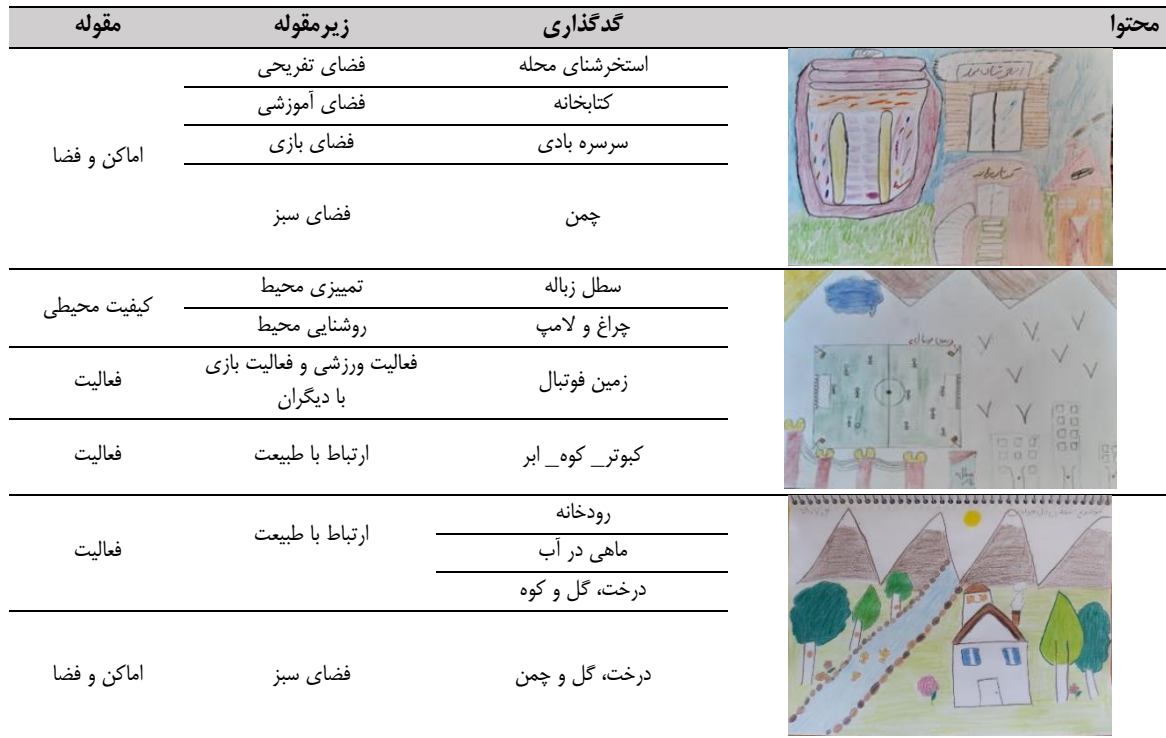 محتوا گدگذاری زیرمقوله مقوله
استخرشنای محله فضای تفریحی
کتابخانه فضای آموزشی
سرسره بادی فضای بازی
اماکن و فضا
چمن فضای سبز
کتابخانه
سطل زباله تمییزی محیط
کیفیت محیطی
چراغ و لامپ روشنایی محیط
زمین فوتبال فعالیت ورزشی و فعالیت بازی
با دیگران فعالیت
کبوتر_ کوه_ ابر ارتباط با طبیعت فعالیت
رودخانه
ارتباط با طبیعت
ماهی در آب فعالیت
درخت، گل و کوه
درخت، گل و چمن فضای سبز اماکن و فضا